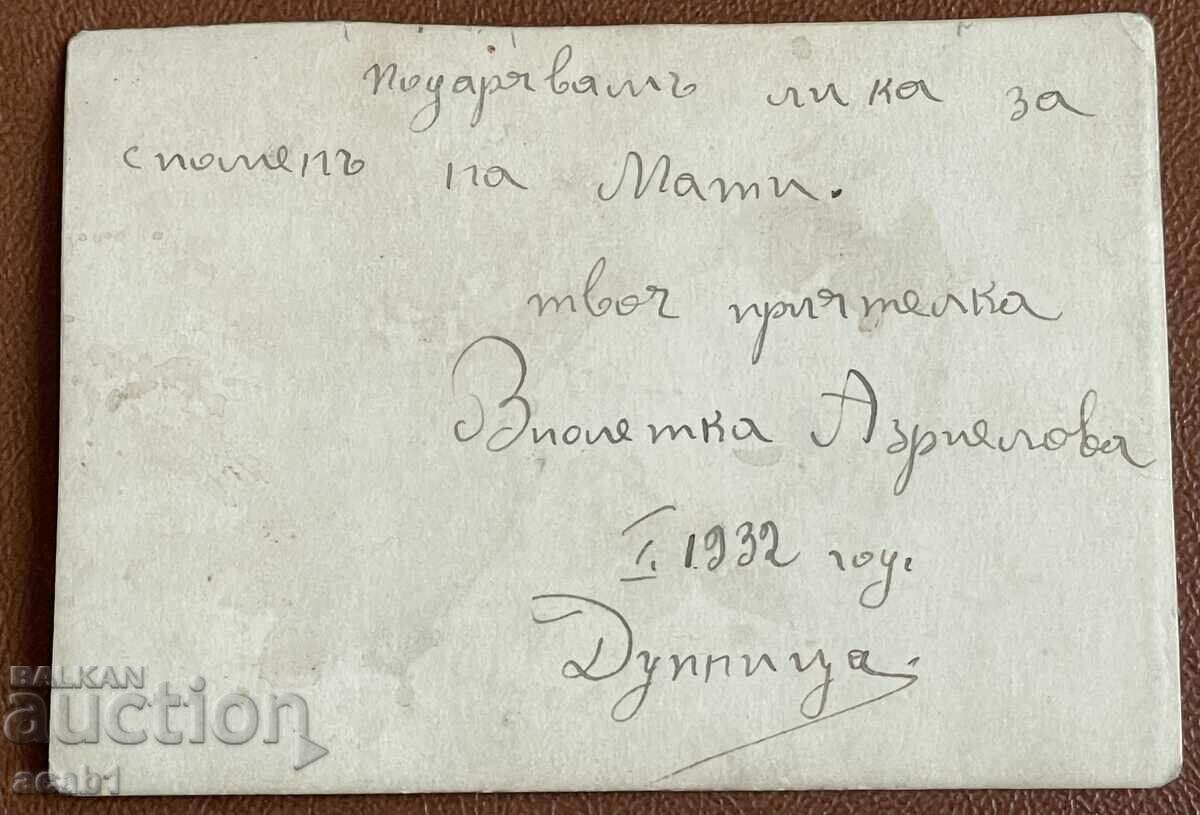 подарявамъ лика за
споменъ на Мати.
твоя приятелка
Виолетка Азриелова
I. 1932 год.
Дупница.
BALKAN
auction
acab1